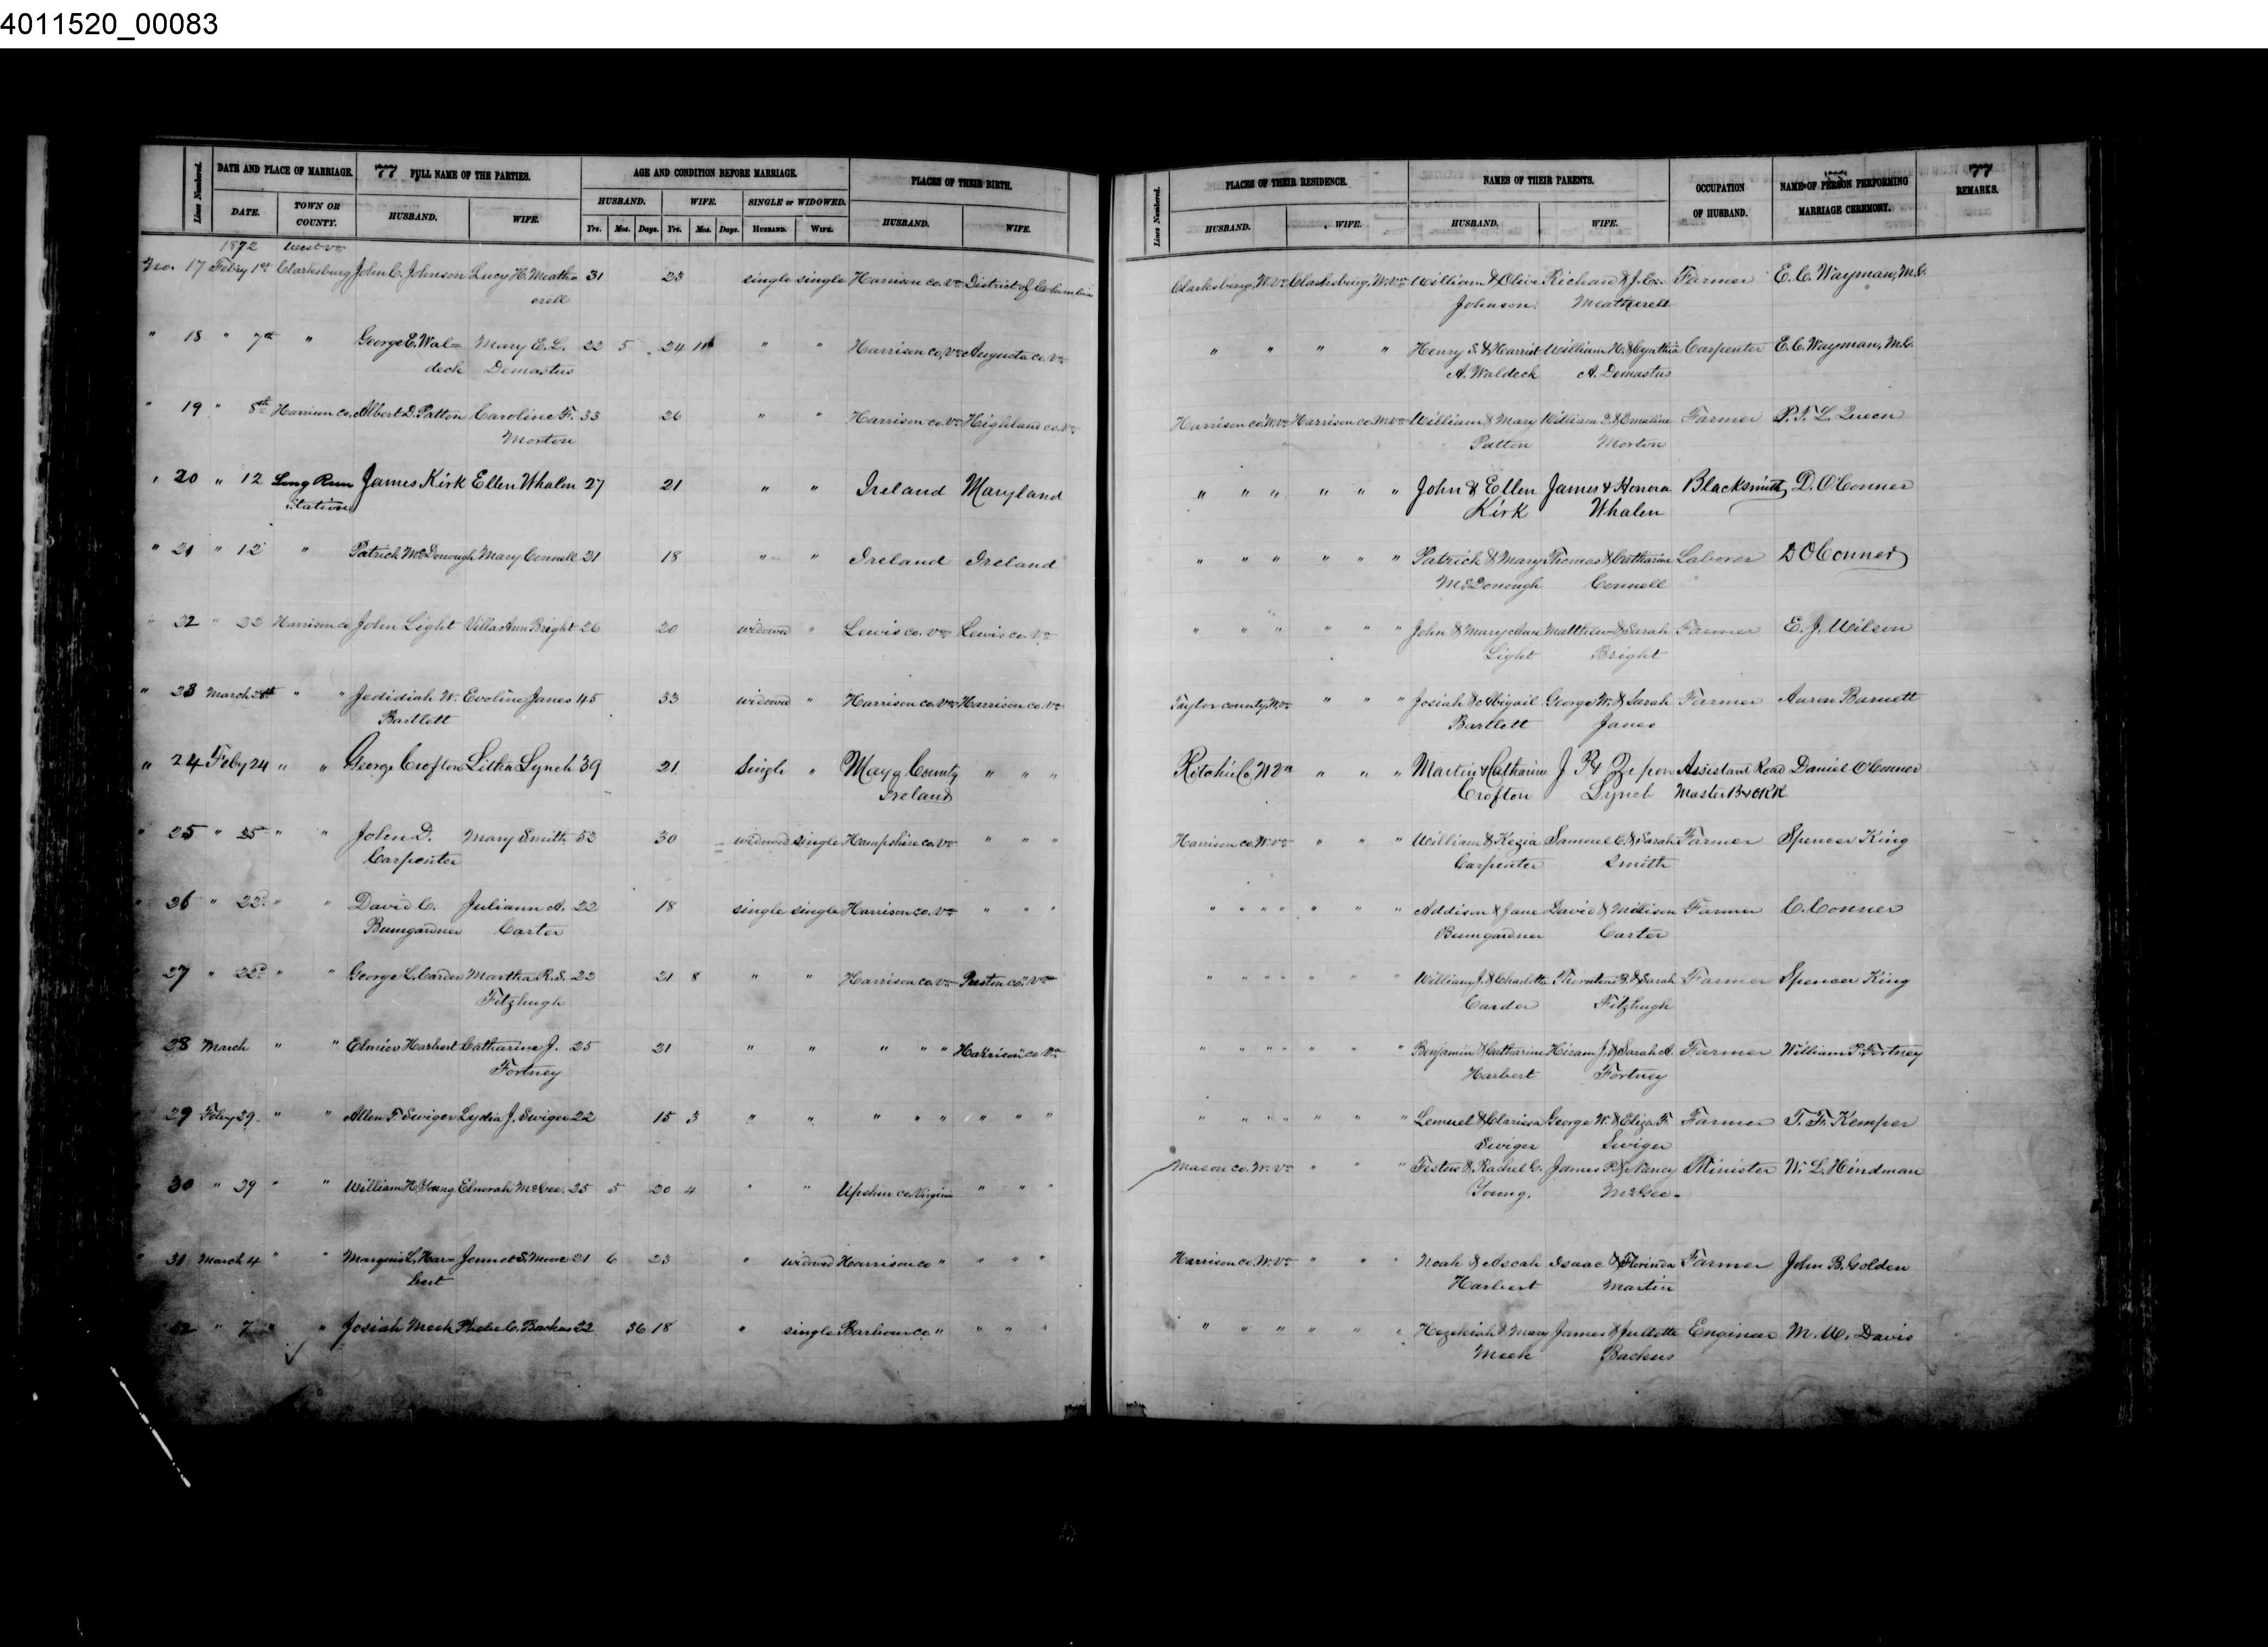 4011520_00083
Lines Numbered. DATE AND PLACE OF MARRIAGE. 77 FULL NAME OF THE PARTIES. AGE AND CONDITION BEFORE MARRIAGE. PLACES OF THEIR BIRTH.
DATE. TOWN OR COUNTY. HUSBAND. WIFE. HUSBAND. WIFE. SINGLE or WIDOWED. HUSBAND. WIFE.
Yrs. Mos. Days. Yrs. Mos. Days. HUSBAND. WIFE.
Lines Numbered. PLACES OF THEIR RESIDENCE. NAMES OF THEIR PARENTS. OCCUPATION OF HUSBAND. NAME OF PERSON PERFORMING MARRIAGE CEREMONY. 77 REMARKS.
HUSBAND. WIFE. HUSBAND. WIFE.
1872 West Va
No. 17 Feb'ry 1st Clarksburg John C. Johnson Lucy H. Meatha 31 23 single single Harrison co. Va District of Columbia Clarksburg, W. Va Clarksburg, W. Va William & Olive Richard & J. Farmer E. C. Wayman, M.G.
erell Johnson. Meatherell
" 18 " 7th " George E. Wal= Mary E. L. 22 5 24 11 " " Harrison co, Va Augusta co. Va " " " " Henry S. & Harriet William H. & Cynthia Carpenter E. C. Wayman, M.G.
deck Demastus A. Waldeck A. Demastus
" 19 " 8th Harrison co. Albert D. Patton Caroline F. 33 26 " " Harrison co. Va Highland co. Va Harrison co W. Va Harrison co. W. Va William & Mary William & Emaline Farmer P. T. L. Queen
Morton Patton Morton
" 20 " 12 Long Run James Kirk Ellen Whalen 27 21 " " Ireland Maryland " " " " " " John & Ellen James & Honora Blacksmith D. O'Conner
Station Kirk Whalen
" 21 " 12 " Patrick McDonough Mary Connell 21 18 " " Ireland Ireland " " " " " " Patrick & Mary Thomas & Catharine Laborer D O'Conner
McDonough Connell
" 22 " 22 Harrison co John Light Villa Ann Bright 26 20 widowed " Lewis co. Va Lewis co. Va " " " " " " John & Mary Ann Matthew & Sarah Farmer E. J. Wilson
Light Bright
" 23 March 28th " " Jedidiah W. Evoline Janes 45 33 widowed " Harrison co. Va Harrison co. Va Taylor county, W. Va " " " Josiah & Abigail George W. & Sarah Farmer Aaron Barnett
Bartlett Janes
" 24 Feby 24 " " George Crofton Litha Lynch 39 21 Single " Mayo County " " " Ritchie Co, W Va " " " Martin & Catharine J P & Assistant Road Daniel O'Conner
Ireland Crofton Lynch Master B&ORR
" 25 " 25 " " John D. Mary Smith 53 30 widowed single Hampshire co. Va " " " Harrison co. W. Va " " " William & Kezia Samuel C. & Sarah Farmer Spencer King
Carpenter Carpenter Smith
" 26 " 22d " " David C. Juliann A. 22 18 single single Harrison co. Va " " " " " " " " " " Addison & Jane David & Millison Farmer C. Conner
Bumgardner Carter Bumgardner Carter
27 " 22d " " George L. Carder Martha R. S. 22 21 8 " " Harrison co. Va Preston co. Va " " " " " " " William J. & Charlotte Thornton B. & Sarah Farmer Spencer King
Fitzhugh Carder Fitzhugh
28 March " " Elmies Harbert Catharine J. 25 21 " " " " " Harrison co Va " " " " " " " Benjamin & Catharine Hiram J. & Sarah A. Farmer William P. Fortney
Fortney Harbert Fortney
29 Feby 29 " " Allen F. Swiger Lydia J. Swiger 22 15 3 " " " " " " " " " " " " " " " Lemuel & Clarissa George W. & Eliza F. Farmer T. F. Kemper
Swiger Swiger
30 " 29 " " William H. Young Elnorah McGee. 25 5 20 4 " " Upshur co. Virginia " " " Mason co. W. Va " " " Festus & Rachel C. James P. & Nancy Minister W. L. Hindman
Young. McGee
" 31 March 4 " " Marquis L. Har- Jennet S. Moore 21 6 23 " widowed Harrison co " " " " Harrison co. W. Va " " " Noah & Ascah Isaac & Florinda Farmer John B. Golden
bert Harbert Martin
32 " 7 " " Josiah Meek Phebe C. Backus 22 36 18 " single Barbour co. " " " " " " " " " " Hezekiah & Mary James & Juliette Engineer M. W. Davis
Meek Backus